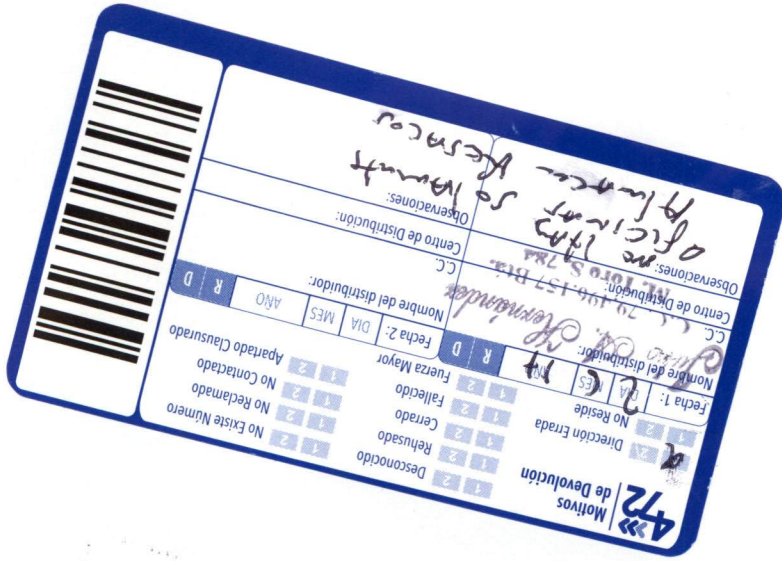 472
Motivos
de Devolución
1 2 Desconocido
1 2 Rehusado
1 2 Cerrado
1 2 Fallecido
1 2 Fuerza Mayor
1 2 No Existe Número
1 2 No Reclamado
1 2 No Contactado
1 2 Apartado Clausurado
1 2 Dirección Errada
1 2 No Reside
Fecha 1: DIA MES AÑO R D
2 6 17
Nombre del distribuidor:
Hernández
C.C. 79.496.157 Bta.
Centro de Distribución:
M. Toro S. 784
Observaciones:
no hay
oficinas solamente
Almacen
Fecha 2: DIA MES AÑO R D
Nombre del distribuidor:
C.C.
Centro de Distribución:
Observaciones: